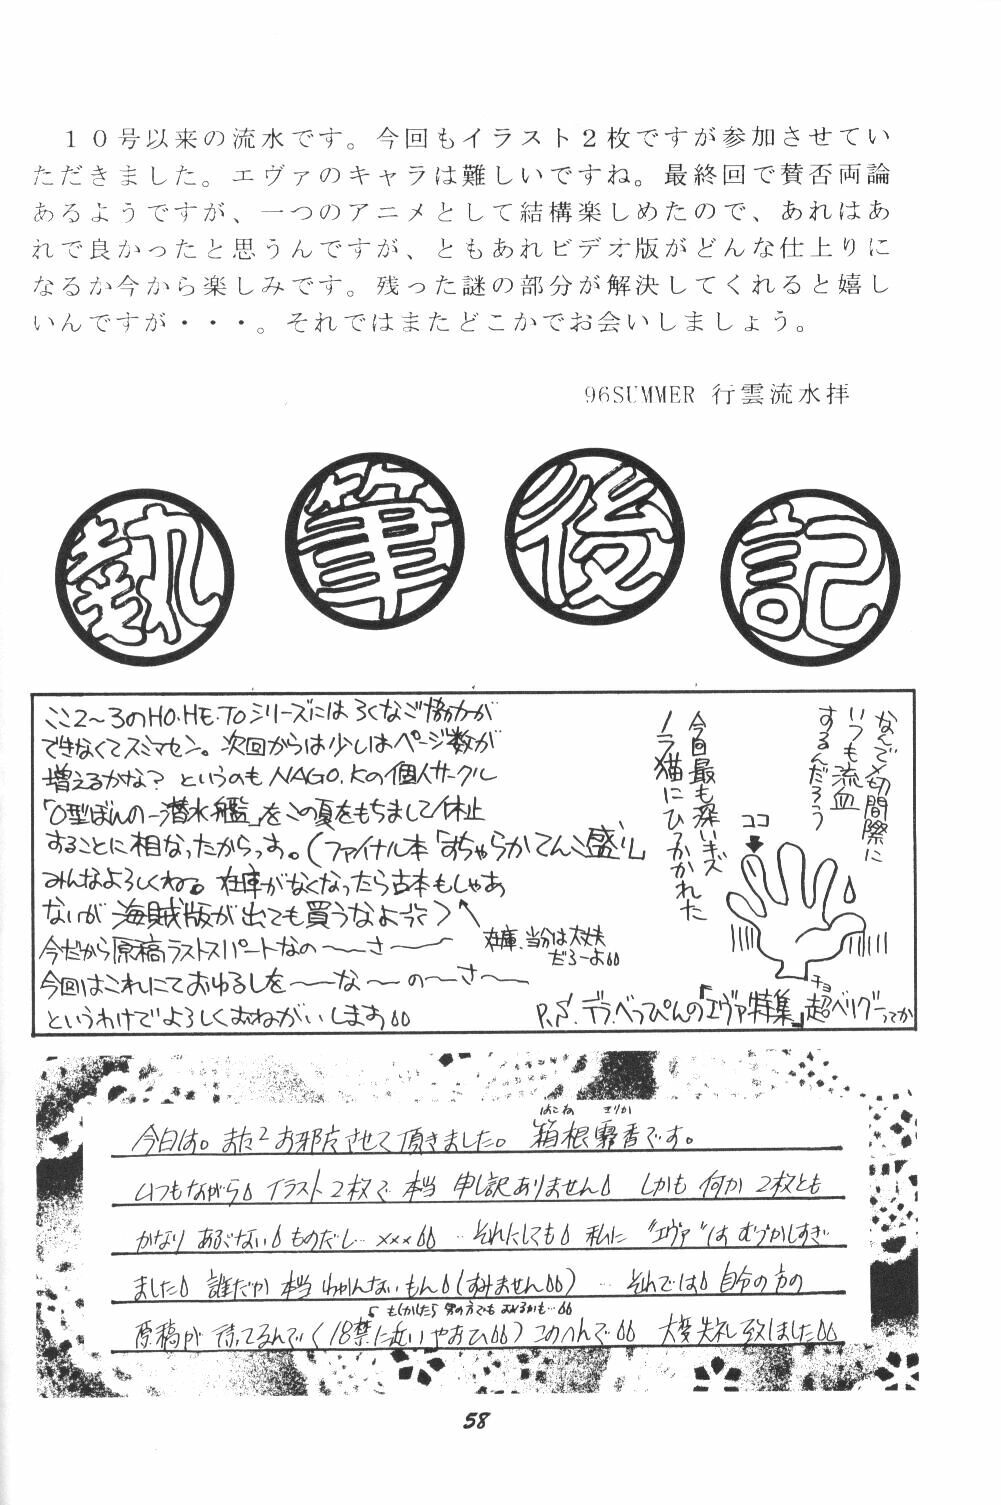 １０号以来の流水です。今回もイラスト２枚ですが参加させてい
ただきました。エヴァのキャラは難しいですね。最終回で賛否両論
あるようですが、一つのアニメとして結構楽しめたので、あれはあ
れで良かったと思うんですが、ともあれビデオ版がどんな仕上りに
なるか今から楽しみです。残った謎の部分が解決してくれると嬉し
いんですが・・・。それではまたどこかでお会いしましょう。
96SUMMER 行雲流水拝
執筆後記
ここ2〜3のHO・HE・TOシリーズにはろくなご協力が
できなくてスミマセン。次回からは少しはページ数が
増えるかな? というのもNAGO.Kの個人サークル
「O型ぼんの一潜水艦」をこの夏をもちまして休止
することに相なったからっす。(ファイナル本「おちゃらかてんこ盛り」
みんなよろしくね。在庫がなくなったら古本もしゃあ
ないが海賊版が出ても買うなよ)
在庫、当分は大丈夫
だろーよ
今だから原稿ラストスパートなの〜〜さ〜〜
今回はこれにておゆるしを〜〜な〜〜の〜さ〜〜
というわけでよろしくおねがいします
なんで〆切間際に
いつも流血
するんだろう
ココ
今回最も深いキズ
ノラ猫にひっかかれた
P.S.デラべっぴんの「エヴァ特集」超ベリグーってか
チョ
今日は。また2お邪魔させて頂きました。箱根霧香です。
はこね きりか
いつもながらイラスト2枚で本当申し訳ありません しかも何か2枚とも
かなりあぶないものだし…×××…それにしても 私に"エヴァ"はむづかしすぎ
ました 誰だか本当わかんないもん(すみません)…それでは 自分の方の
もしかしたら男の方でもおれるかも…
原稿が待ってるんで(18禁に近いやおひ)このへんで 大変失礼致しました
58